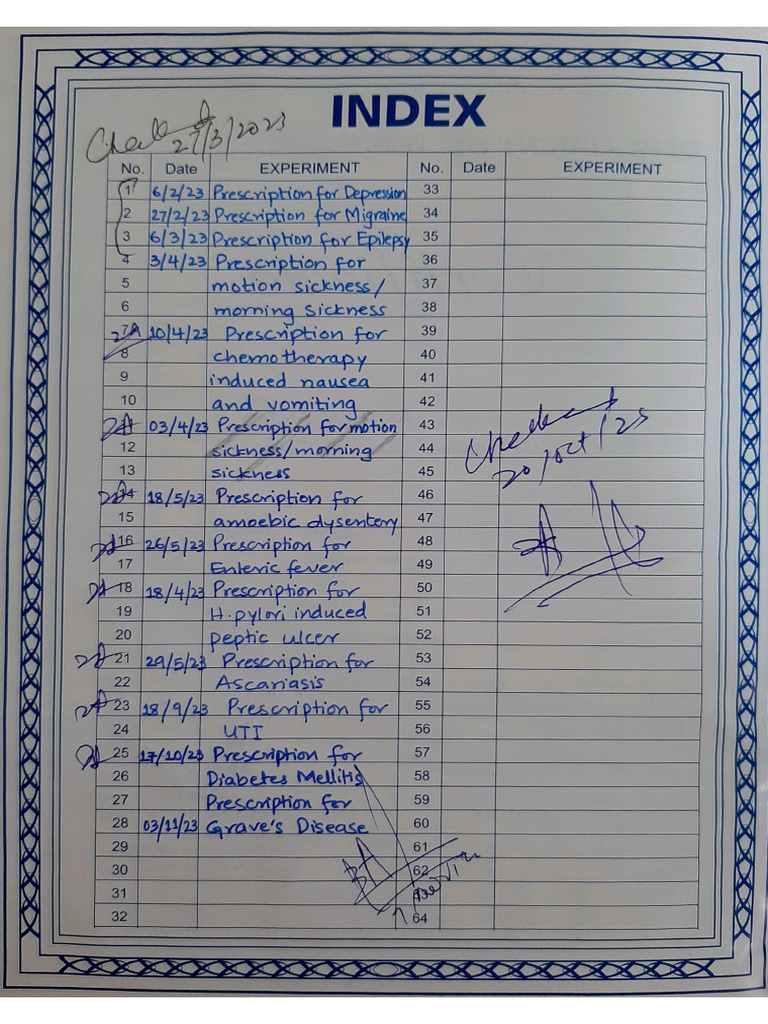 INDEX
Checked
27/3/2023
No. Date EXPERIMENT No. Date EXPERIMENT
1 6/2/23 Prescription for Depression 33
2 27/2/23 Prescription for Migraine 34
3 6/3/23 Prescription for Epilepsy 35
4 3/4/23 Prescription for 36
5 motion sickness/ 37
6 morning sickness 38
7 10/4/23 Prescription for 39
8 chemotherapy 40
9 induced nausea 41
10 and vomiting 42
03/4/23 Prescription for motion 43
12 sickness/morning 44
13 sickness 45
14 18/5/23 Prescription for 46
15 amoebic dysentery 47
16 26/5/23 Prescription for 48
17 Enteric fever 49
18 18/4/23 Prescription for 50
19 H.pylori induced 51
20 peptic ulcer 52
21 29/5/23 Prescription for 53
22 Ascariasis 54
23 18/9/23 Prescription for 55
24 UTI 56
25 17/10/23 Prescription for 57
26 Diabetes Mellitis 58
27 Prescription for 59
28 03/11/23 Grave's Disease 60
29 61
30 62
31
32 64
Checked
20/oct/23